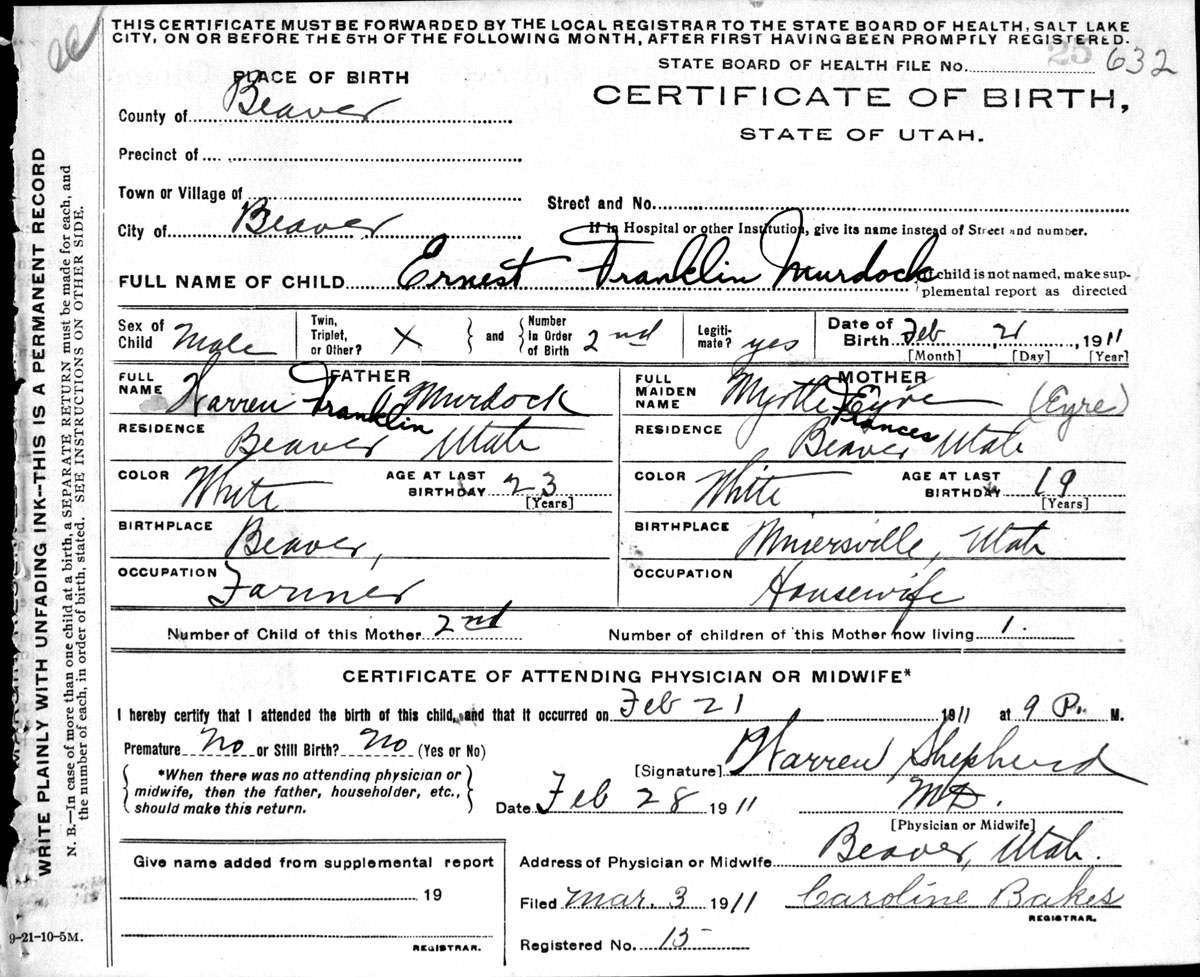 THIS CERTIFICATE MUST BE FORWARDED BY THE LOCAL REGISTRAR TO THE STATE BOARD OF HEALTH, SALT LAKE
CITY, ON OR BEFORE THE 5TH OF THE FOLLOWING MONTH, AFTER FIRST HAVING BEEN PROMPTLY REGISTERED.
STATE BOARD OF HEALTH FILE No. 25 632
PLACE OF BIRTH
CERTIFICATE OF BIRTH,
STATE OF UTAH.
County of Beaver
Precinct of
Town or Village of
Street and No.
City of Beaver
If in Hospital or other Institution, give its name instead of Street and number.
FULL NAME OF CHILD Ernest Franklin Murdock
child is not named, make sup-
plemental report as directed
Sex of Child Male
Twin, Triplet, or Other? X
and
Number in Order of Birth 2nd
Legiti-mate? yes
Date of Birth Feb 21, 1911
[Month] [Day] [Year]
FATHER
FULL NAME Warren Franklin Murdock
RESIDENCE Beaver Utah
COLOR White
AGE AT LAST BIRTHDAY 23
[Years]
BIRTHPLACE Beaver,
OCCUPATION Farmer
MOTHER
FULL MAIDEN NAME Myrtle Frances Eyre (Eyre)
RESIDENCE Beaver Utah
COLOR White
AGE AT LAST BIRTHDAY 19
[Years]
BIRTHPLACE Minersville, Utah
OCCUPATION Housewife
Number of Child of this Mother 2nd
Number of children of this Mother now living 1.
CERTIFICATE OF ATTENDING PHYSICIAN OR MIDWIFE*
I hereby certify that I attended the birth of this child, and that it occurred on Feb 21 1911 at 9 P. M.
Premature No or Still Birth? No (Yes or No)
*When there was no attending physician or
midwife, then the father, householder, etc.,
should make this return.
[Signature] Warren Shepherd
Date Feb 28 1911 M.D.
[Physician or Midwife]
Address of Physician or Midwife Beaver, Utah.
Filed Mar. 3 1911 Caroline Bakes
REGISTRAR.
Registered No. 15
Give name added from supplemental report
19
REGISTRAR.
WRITE PLAINLY WITH UNFADING INK--THIS IS A PERMANENT RECORD
N. B.—In case of more than one child at a birth, a SEPARATE RETURN must be made for each, and
the number of each, in order of birth, stated. SEE INSTRUCTIONS ON OTHER SIDE.
9-21-10-5M.